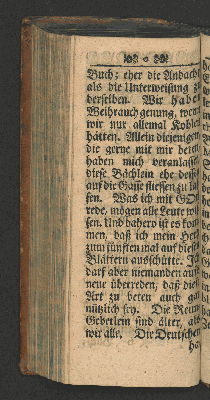 Buch; eher die Andacht
als die Unterweisung z
derselben. Wir habe
Weihrauch genung, wen
wir nur allemal Kohle
hätten. Allein diejenige
die gerne mit mir bete
haben mich veranlass
diese Bächlein ehe deiss
auf die Gasse fliessen zu las
sen. Was ich mit GO
rede, mögen alle Leute wis
sen. Und dahero ist es kom
men, daß ich mein Her
zum fünften mal auf diesen
Blättern ausschütte. Ic
darf aber niemanden auf
neue überreden, daß dies
Art zu beten auch ga
nützlich sey. Die Reim
Gebetlein sind älter, als
wir alle. Die Deutschen
ha